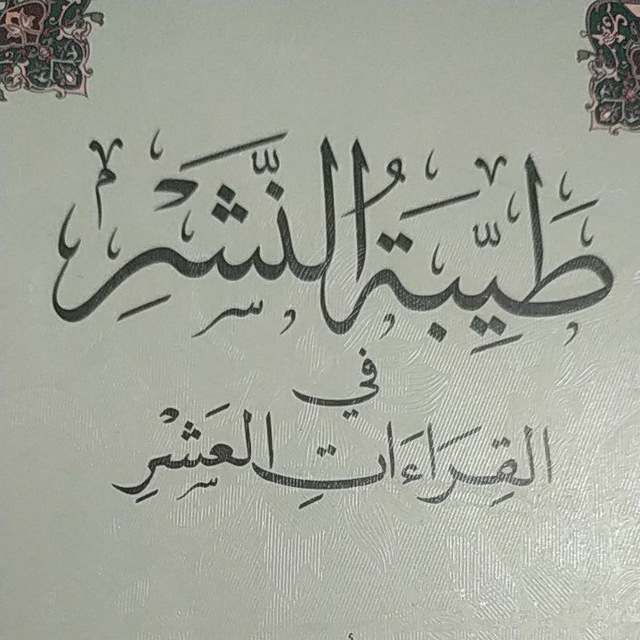 طَيِّبَةُ النَّشْرِ
في
القِرَاءَاتِ العَشْرِ